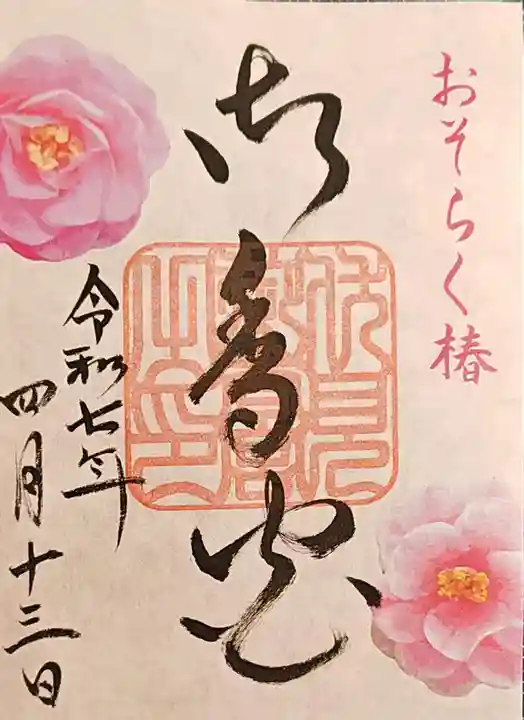 おそらく椿
御香宮
令和七年
四月十三日